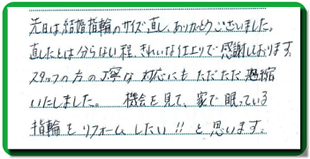 先日は結婚指輪のサイズ直し、ありがとうございました。
直したとは分らない程、きれいな仕上りで感謝しております。
スタッフの方の丁寧な対応にもただただ恐縮
いたしました。 機会を見て、家で眠っている
指輪をリフォームしたい!!と思います。